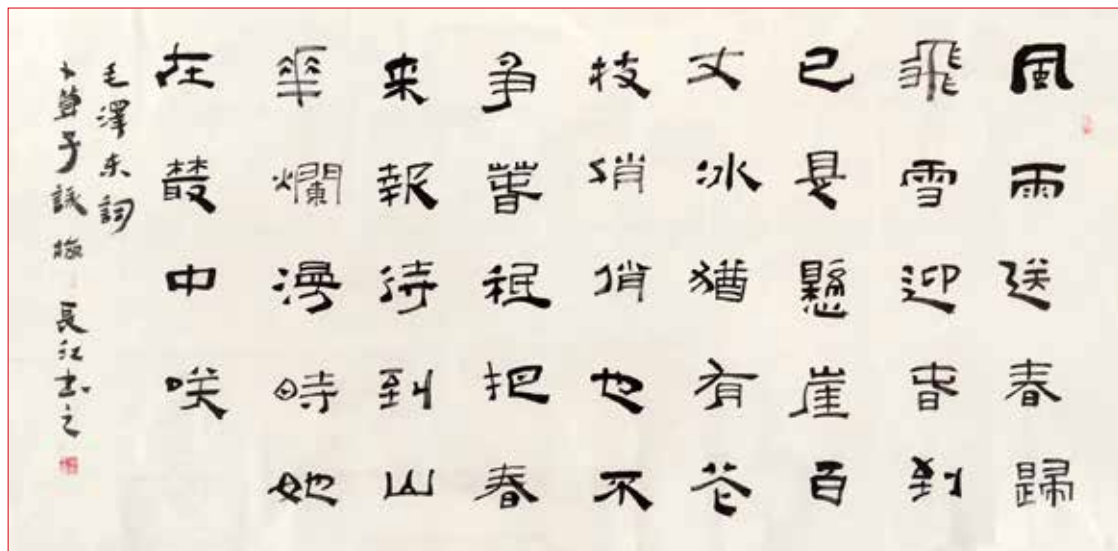 風雨送春歸
飛雪迎萅到
已是懸崖百
丈冰猶有花
枝俏俏也不
爭萅秪把春
来報待到山
華爛漫時她
在叢中咲
毛澤东詞
卜算子詠梅 長江书之